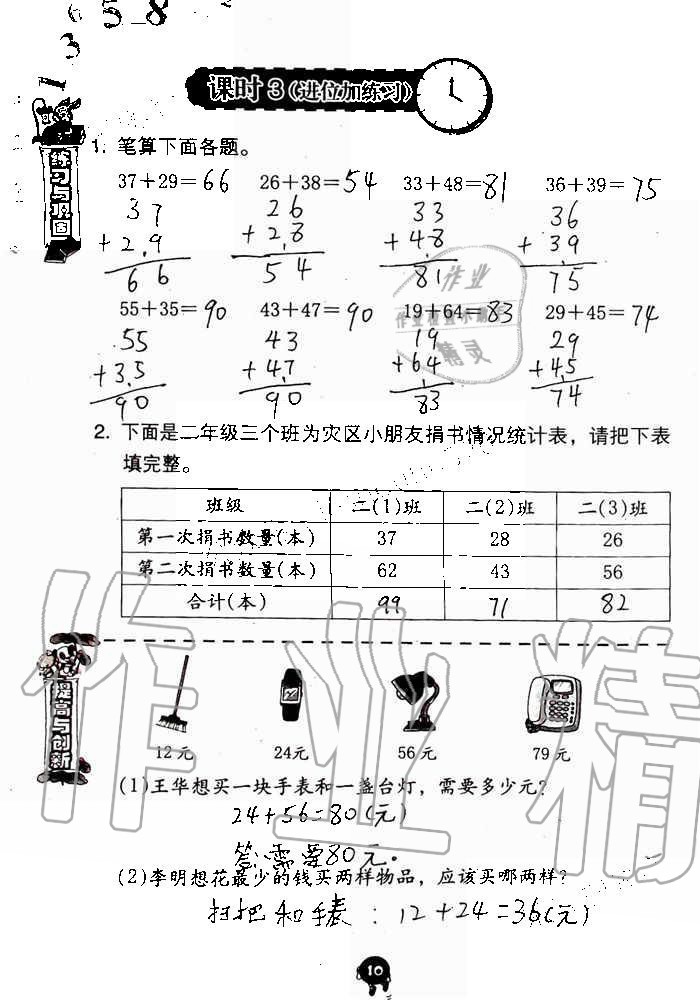 6 5 8
1 3
课时 3（进位加练习）
练习与巩固
1. 笔算下面各题。
37+29=66 26+38=54 33+48=81 36+39=75
37 26 33 36
+29 +28 +48 +39
66 54 81 75
55+35=90 43+47=90 19+64=83 29+45=74
55 43 19 29
+35 +47 +64 +45
90 90 83 74
2. 下面是二年级三个班为灾区小朋友捐书情况统计表，请把下表
填完整。
班级 二(1)班 二(2)班 二(3)班
第一次捐书数量(本) 37 28 26
第二次捐书数量(本) 62 43 56
合计(本) 99 71 82
提高与创新
12元 24元 56元 79元
(1)王华想买一块手表和一盏台灯，需要多少元？
24+56=80(元)
答：需要80元。
(2)李明想花最少的钱买两样物品，应该买哪两样？
扫把和手表：12+24=36(元)
10
作业精
作业
精灵